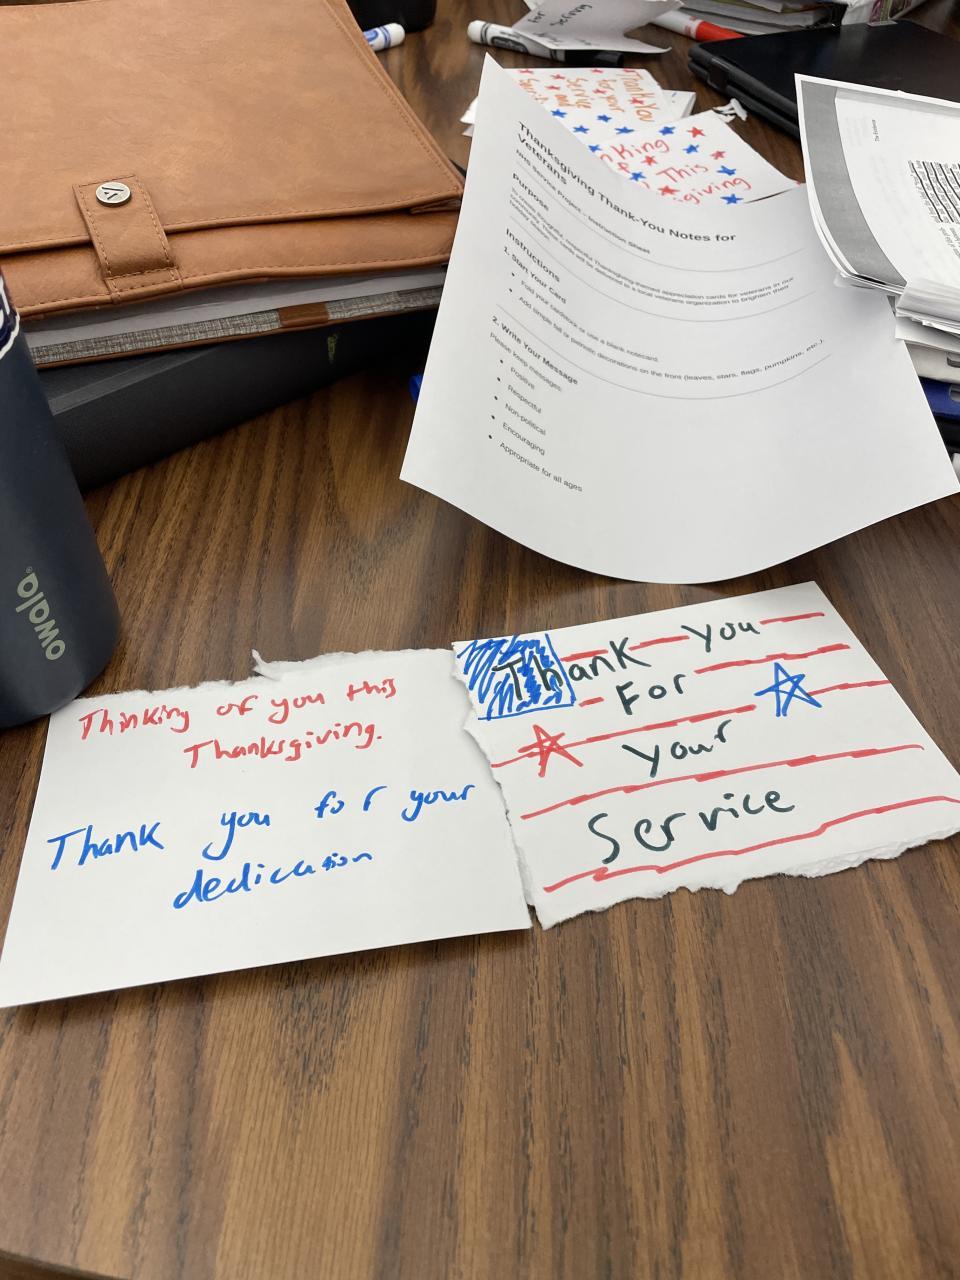 Thank You
for your
Service
and
Thinking
of
This
giving
Thanksgiving Thank-You Notes for
Veterans
NHS Service Project – Instruction Sheet
Purpose
To create thoughtful, respectful Thanksgiving-themed appreciation cards for veterans in our
community. These cards will be delivered to a local veterans organization to brighten their
holiday.
Instructions
1. Start Your Card
Fold your cardstock or use a blank notecard.
Add simple fall or patriotic decorations on the front (leaves, stars, flags, pumpkins, etc.).
2. Write Your Message
Please keep messages:
Positive
Respectful
Non-political
Encouraging
Appropriate for all ages
The Evidence
owala
Thinking of you this
Thanksgiving.
Thank you for your
dedication
Thank You
For
Your
Service